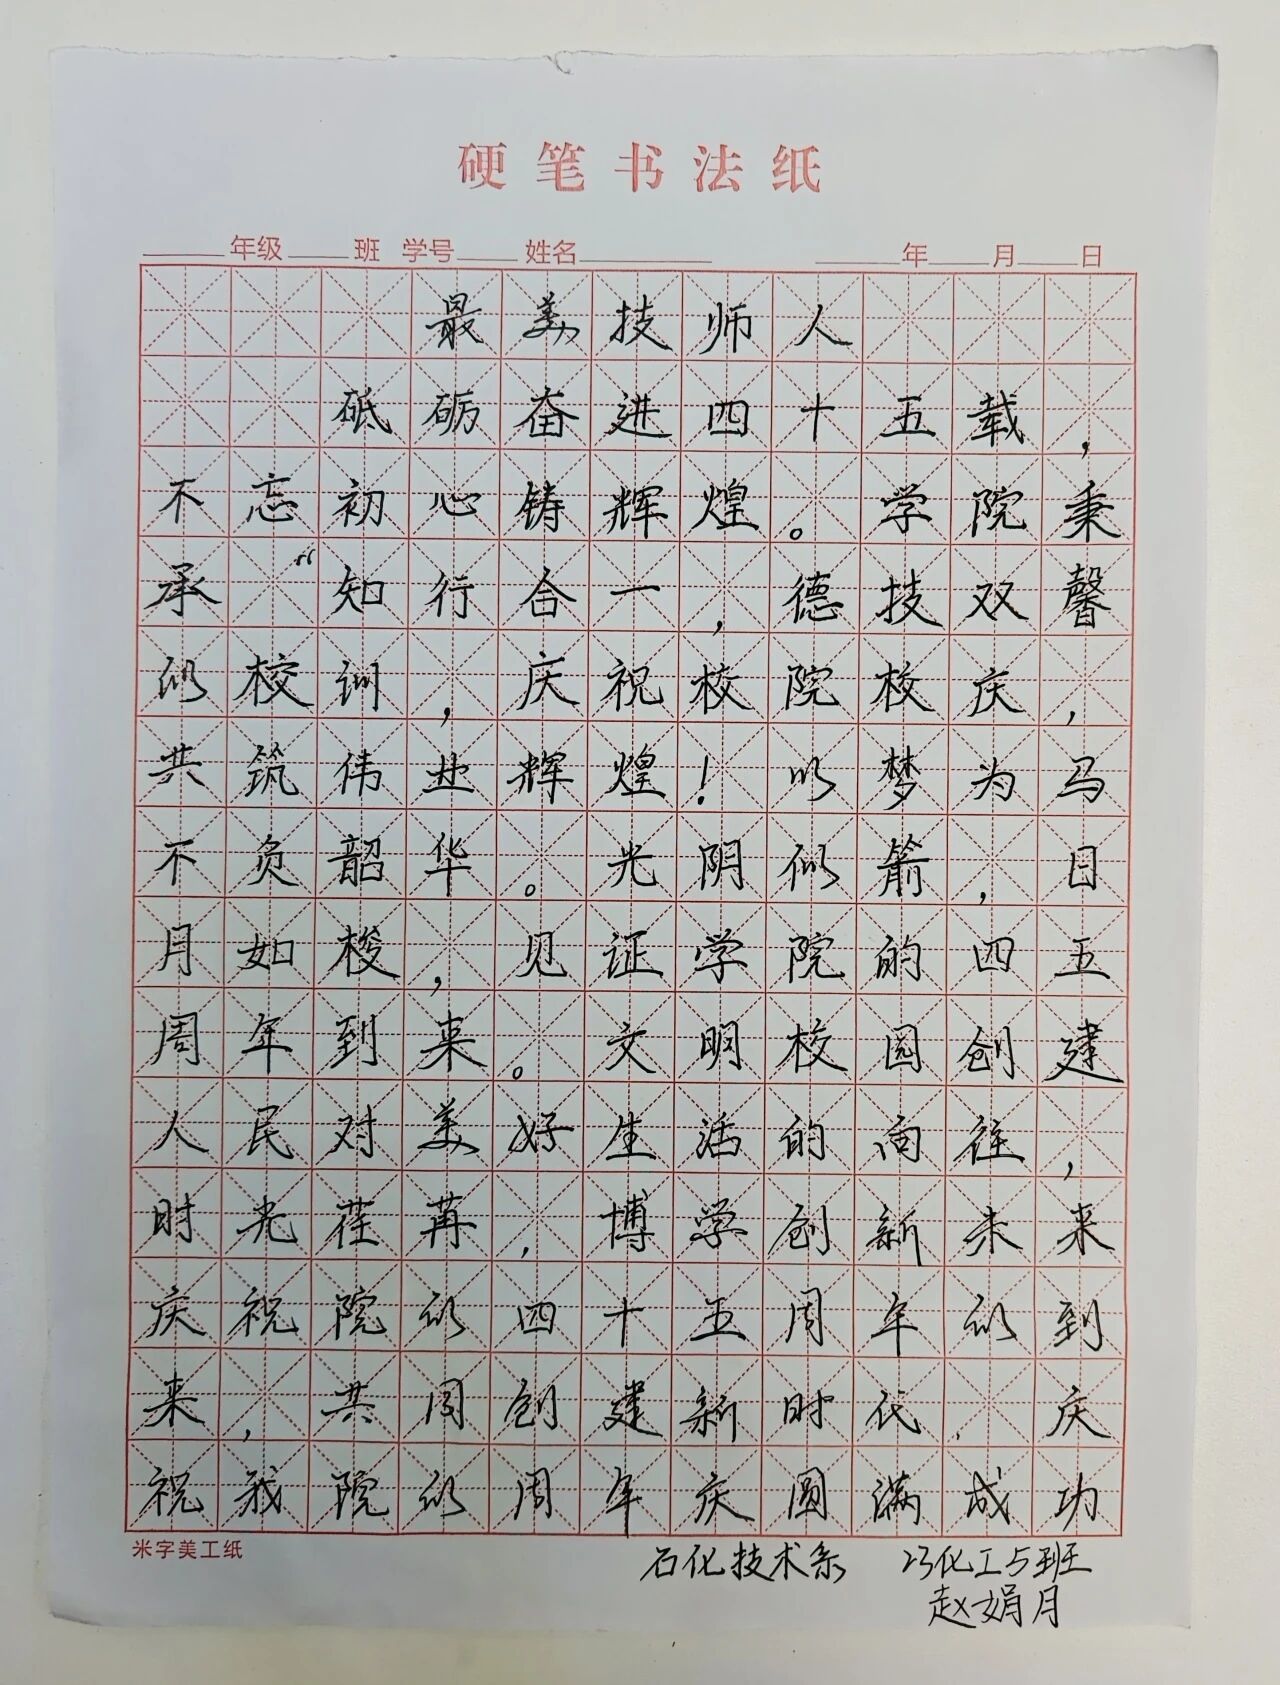 硬笔书法纸
年级 班 学号 姓名 年 月 日
最美技师人
砥砺奋进四十五载，
不忘初心铸辉煌。学院秉
承“知行合一，德技双馨
的校训，庆祝校院校庆，
共筑伟业辉煌！以梦为马
不负韶华。光阴似箭，日
月如梭，见证学院的四五
周年到来。文明校园创建
人民对美好生活的向往，
时光荏苒，博学创新未来
庆祝院的四十五周年的到
来，共同创建新时代，庆
祝我院的周年庆圆满成功
米字美工纸
石化技术系 23化工5班
赵娟月